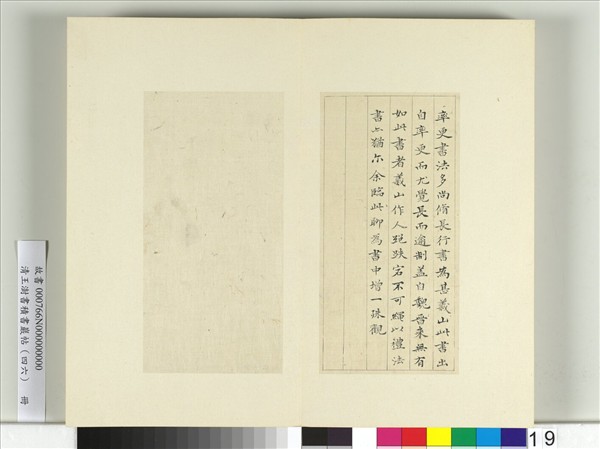 率更書法多尚脩長行書為甚義山此書出
自率更而尤覺長而遒剬蓋自魏晉來無有
如此書者義山作人跪趺宕不可繩以禮法
書亦猶尔余臨此聊為書中增一殊觀
故書 000766N000000000
清王澍書積書巖帖(四六) 冊
19